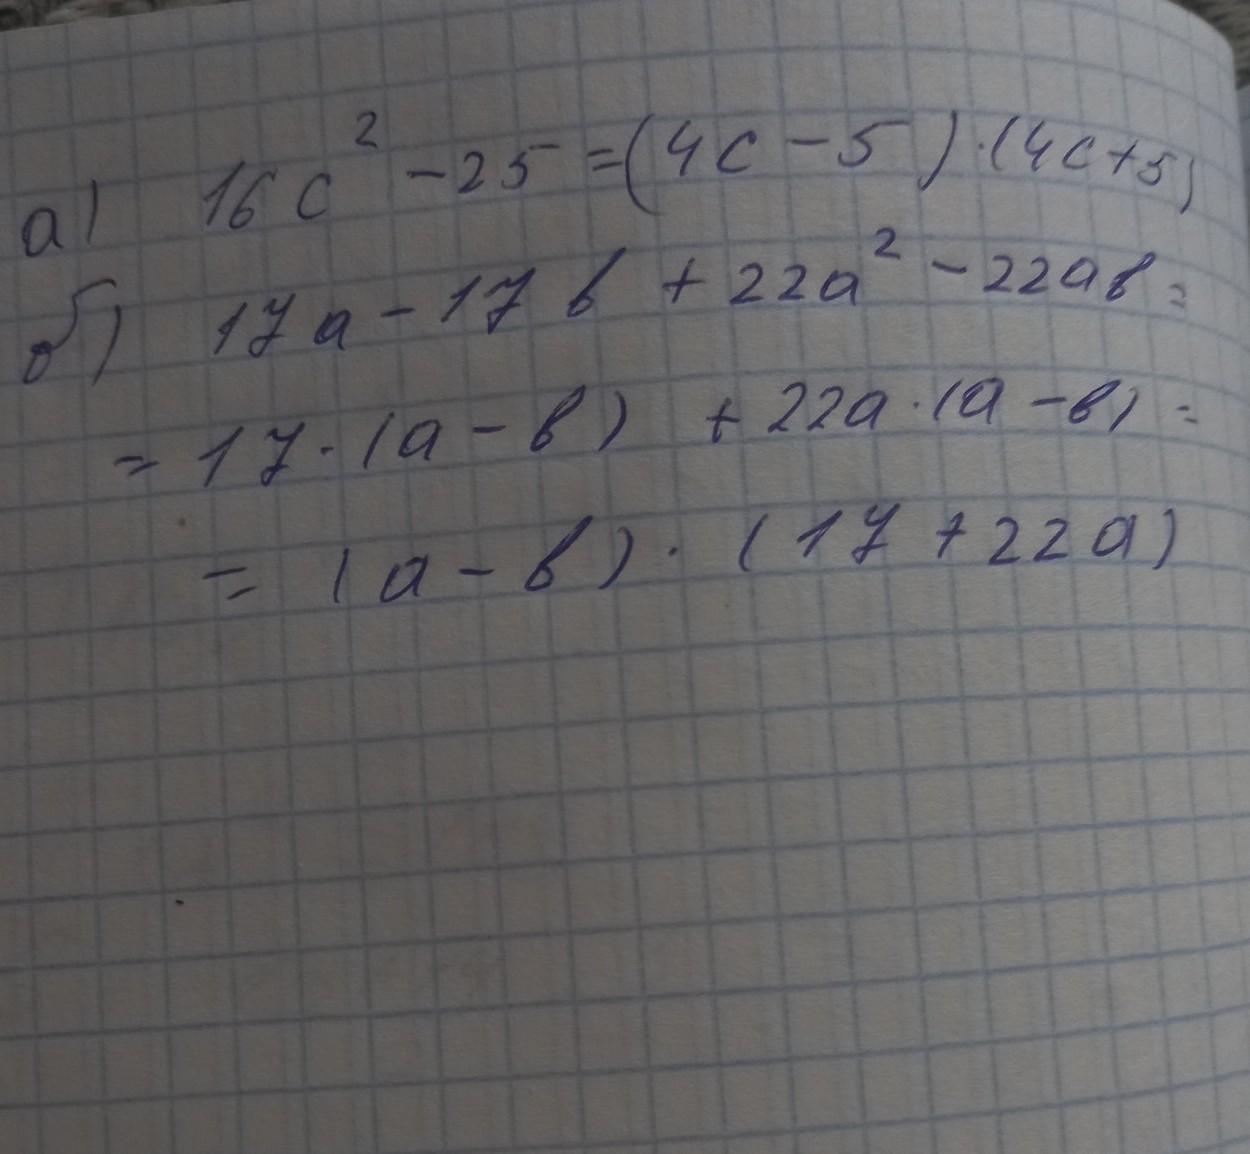 а) 16c² - 25 = (4c - 5) · (4c + 5)
б) 17a - 17b + 22a² - 22ab =
= 17 · (a - b) + 22a · (a - b) =
= (a - b) · (17 + 22a)